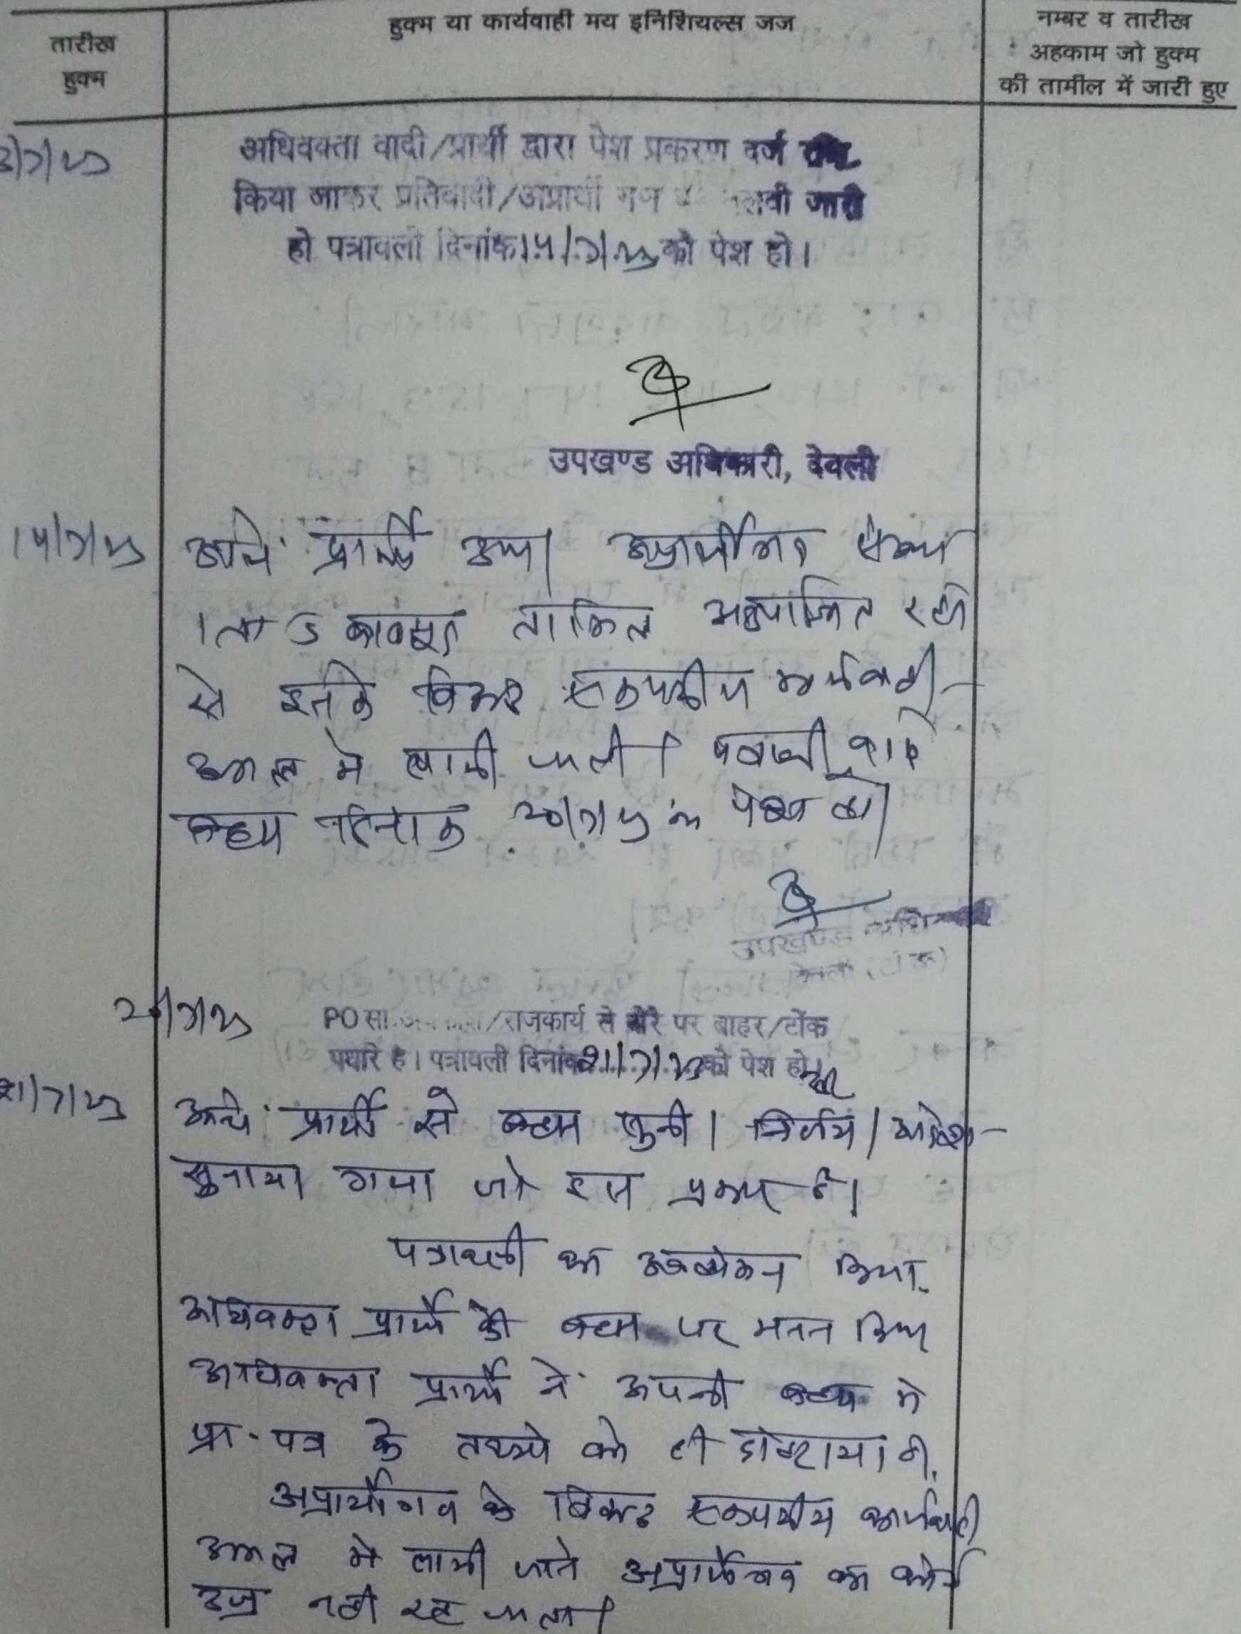 तारीख
हुक्म
हुक्म या कार्यवाही मय इनिशियल्स जज
नम्बर व तारीख
अहकाम जो हुक्म
की तामील में जारी हुए
अधिवक्ता वादी/प्रार्थी द्वारा पेश प्रकरण दर्ज
किया जाकर प्रतिवादी/अप्रार्थी गण तलवी जारी
हो पत्रावली दिनांक को पेश हो।
उपखण्ड अधिकारी, देवली
अधि. प्रार्थी उप। अप्रार्थीगण संख्या
1 ता 5 बावजूद तामिल अनुपस्थित रहने
से इनके विरूद्ध एकपक्षीय कार्यवाही
अमल में लायी जाती। पत्रावली वास्ते
बहस दिनांक को पेश हो।
उपखण्ड
PO सा. /राजकार्य से दौरे पर बाहर/टोंक
पधारे है। पत्रावली दिनांक को पेश हो
अधि. प्रार्थी से बहस सुनी। निर्णय/आदेश
सुनाया गया जो इस प्रकार है।
पत्रावली का अवलोकन किया
अधिवक्ता प्रार्थी की बहस पर मनन किया
अधिवक्ता प्रार्थी ने अपनी बहस में
प्रा. पत्र के तथ्यो को ही दोहराया है।
अप्रार्थीगण के विरूद्ध एकपक्षीय कार्यवाही
अमल में लायी जाने अप्रार्थीगण का कोई
उज्र नही रह जाता।